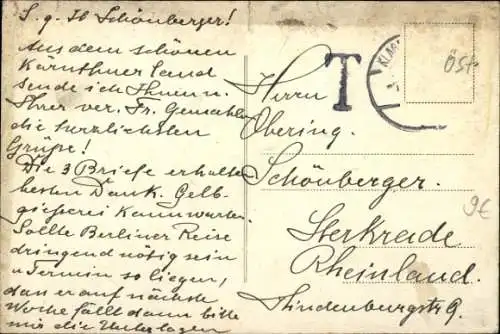 S. g. H Schönberger!
Aus dem schönen
Kärnthner land
sende ich Ihnen u.
Ihrer ver. Fr. Gemahlin
die herzlichsten
Grüße!
Die 3 Briefe erhalten
besten Dank. Gelb-
gießerei kann warten.
Sollte Berliner Reise
dringend nötig sein
u Termin so liegen,
dass er auf nächste
Woche fällt dann bitte
mir die Unterlagen
T
KLAG
ÖSt
Herrn
Obering.
Schönberger.
9€
Sterkrade
Rheinland.
Hindenburgstr 9.